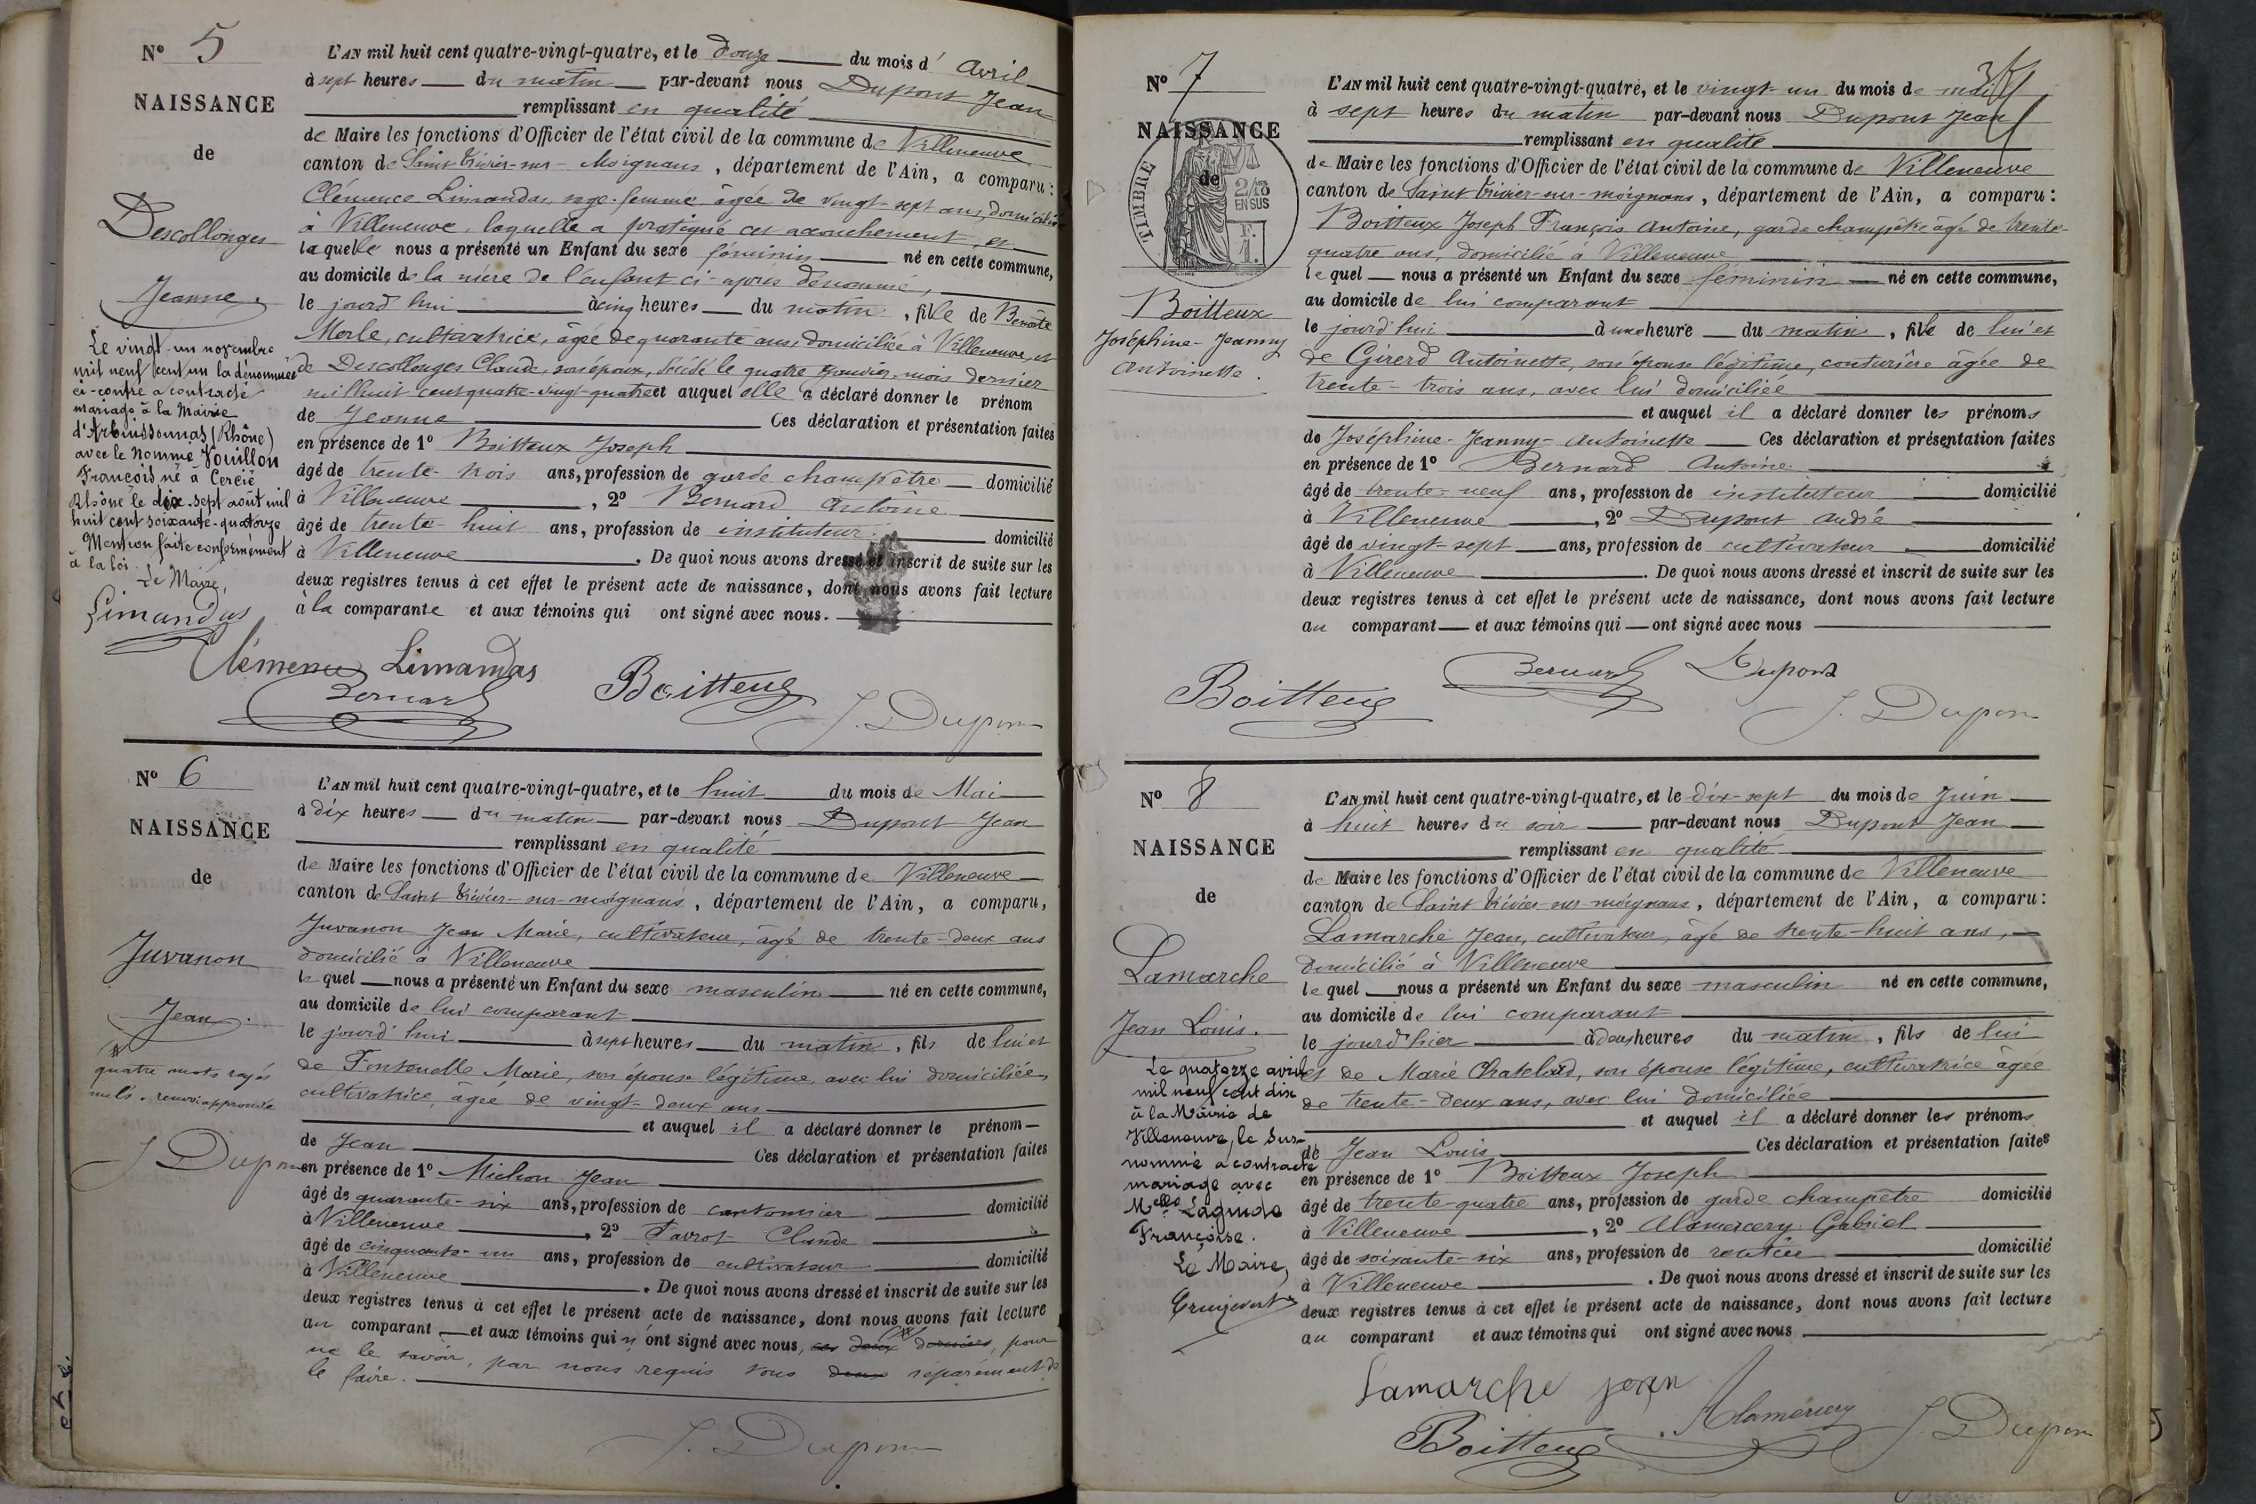 N° 5
NAISSANCE
de
Descollonges
Jeanne
Le vingt-un novembre
mil neuf cent un la dénommée
ci-contre a contracté
mariage à la Mairie
d'Arbuissonnas (Rhône)
avec le nommé Vouillon
François né à Cercié
Rhône le dix-sept août mil
huit cent soixante-quatorze
Mention faite conformément
à la loi.
Le Maire,
Limandas
L'AN mil huit cent quatre-vingt-quatre, et le douze du mois d' Avril
à sept heures du matin par-devant nous Dupont Jean
remplissant en qualité
de Maire les fonctions d'Officier de l'état civil de la commune de Villeneuve
canton de Saint Trivier-sur-Moignans, département de l'Ain, a comparu :
Clémence Limandas, sage-femme âgée de vingt-sept ans, domiciliée
à Villeneuve, laquelle a pratiqué cet accouchement, et
laquelle nous a présenté un Enfant du sexe féminin né en cette commune,
au domicile de la mère de l'enfant ci-après dénommé,
le jourd'hui à cinq heures du matin, fille de Benoite
Merle, cultivatrice, âgée de quarante ans, domiciliée à Villeneuve, et
de Descollonges Claude, son époux, décédé le quatre mois dernier
mil huit cent quatre-vingt-quatre et auquel elle a déclaré donner le prénom
de Jeanne Ces déclaration et présentation faites
en présence de 1° Boitteux Joseph
âgé de trente-trois ans, profession de garde champêtre domicilié
à Villeneuve, 2° Bernard Antoine
âgé de trente-huit ans, profession de instituteur domicilié
à Villeneuve. De quoi nous avons dressé et inscrit de suite sur les
deux registres tenus à cet effet le présent acte de naissance, dont nous avons fait lecture
à la comparante et aux témoins qui ont signé avec nous.
Clémence Limandas
Bernard
Boitteux
J. Dupont
N° 6
NAISSANCE
de
Juvanon
Jean.
quatre mots rayés
nuls. renvoi approuvé
J Dupont
L'AN mil huit cent quatre-vingt-quatre, et le huit du mois de Mai
à dix heures du matin par-devant nous Dupont Jean
remplissant en qualité
de Maire les fonctions d'Officier de l'état civil de la commune de Villeneuve
canton de Saint Trivier-sur-moignans, département de l'Ain, a comparu,
Juvanon Jean Marie, cultivateur, âgé de trente-deux ans
domicilié à Villeneuve
lequel nous a présenté un Enfant du sexe masculin né en cette commune,
au domicile de lui comparant
le jourd'hui à sept heures du matin, fils de lui et
de Fontenelle Marie, son épouse légitime, avec lui domiciliée,
cultivatrice, âgée de vingt-deux ans
et auquel il a déclaré donner le prénom
de Jean Ces déclaration et présentation faites
en présence de 1° Michon Jean
âgé de quarante-six ans, profession de cantonnier domicilié
à Villeneuve, 2° Favrot Claude
âgé de cinquante-un ans, profession de cultivateur domicilié
à Villeneuve. De quoi nous avons dressé et inscrit de suite sur les
deux registres tenus à cet effet le présent acte de naissance, dont nous avons fait lecture
au comparant et aux témoins qui n'ont signé avec nous, ces deux derniers, pour
ne le savoir, par nous requis tous deux séparément de
le faire.
J. Dupont
N° 7
NAISSANCE
de
TIMBRE
2/10
EN SUS
F.
1.
Boitteux
Joséphine-Jeanny
Antoinette.
L'AN mil huit cent quatre-vingt-quatre, et le vingt-un du mois de mai
à sept heures du matin par-devant nous Dupont Jean
remplissant en qualité
de Maire les fonctions d'Officier de l'état civil de la commune de Villeneuve
canton de Saint Trivier-sur-moignans, département de l'Ain, a comparu :
Boitteux Joseph François Antoine, garde champêtre âgé de trente-
quatre ans, domicilié à Villeneuve
lequel nous a présenté un Enfant du sexe féminin né en cette commune,
au domicile de lui comparant
le jourd'hui à une heure du matin, fille de lui et
de Girerd Antoinette, son épouse légitime, couturière âgée de
trente-trois ans, avec lui domiciliée
et auquel il a déclaré donner les prénoms
de Joséphine-Jeanny-Antoinette Ces déclaration et présentation faites
en présence de 1° Bernard Antoine
âgé de trente-neuf ans, profession de instituteur domicilié
à Villeneuve, 2° Dupont André
âgé de vingt-sept ans, profession de cultivateur domicilié
à Villeneuve. De quoi nous avons dressé et inscrit de suite sur les
deux registres tenus à cet effet le présent acte de naissance, dont nous avons fait lecture
au comparant et aux témoins qui ont signé avec nous
Boitteux
Bernard
Dupont
J. Dupont
N° 8
NAISSANCE
de
Lamarche
Jean Louis.
Le quatorze avril
mil neuf cent dix
à la Mairie de
Villeneuve, le sus-
nommé a contracté
mariage avec
Melle Lagnide
Françoise.
Le Maire,
L'AN mil huit cent quatre-vingt-quatre, et le dix-sept du mois de Juin
à huit heures du soir par-devant nous Dupont Jean
remplissant en qualité
de Maire les fonctions d'Officier de l'état civil de la commune de Villeneuve
canton de Saint Trivier-sur-moignans, département de l'Ain, a comparu :
Lamarche Jean, cultivateur, âgé de trente-huit ans,
domicilié à Villeneuve
lequel nous a présenté un Enfant du sexe masculin né en cette commune,
au domicile de lui comparant
le jourd'hier à deux heures du matin, fils de lui
et de Marie Chatelard, son épouse légitime, cultivatrice âgée
de trente-deux ans, avec lui domiciliée
et auquel il a déclaré donner les prénoms
de Jean Louis Ces déclaration et présentation faites
en présence de 1° Boitteux Joseph
âgé de trente-quatre ans, profession de garde champêtre domicilié
à Villeneuve, 2° Alamercery Gabriel
âgé de soixante-six ans, profession de rentier domicilié
à Villeneuve. De quoi nous avons dressé et inscrit de suite sur les
deux registres tenus à cet effet le présent acte de naissance, dont nous avons fait lecture
au comparant et aux témoins qui ont signé avec nous
Lamarche jean
Boitteux
Alamercery
J Dupont